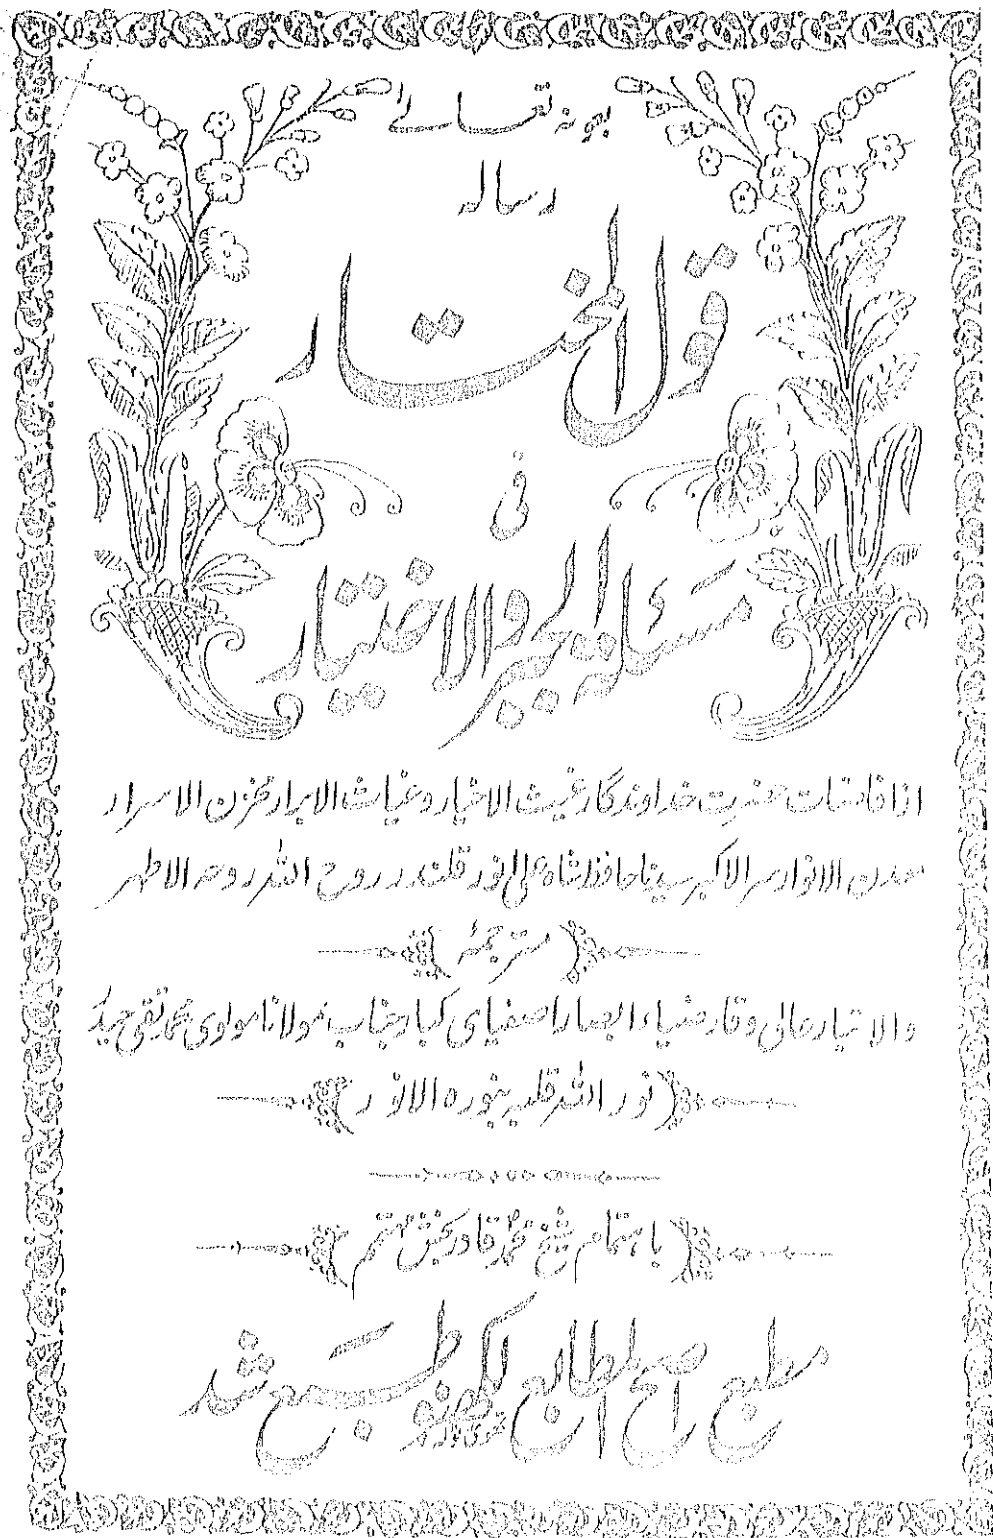 بعونہ تعالےٰ
رسالہ
قول المختار
فی
مسئلۃ الجبر والاختیار
از افاضات حضرت خداوندگار غیث الاخیار و غیاث الابرار مخزن الاسرار
معدن الانوار سر الاکبر سیدنا حافظ شاہ علی انور قلندر روح اللہ روحہ الاطہر
مترجمہ
والا تبار عالی وقار ضیاء ابصار اصفیای کبار جناب مولانا مولوی محمد تقی حیدر
نور اللہ قلبہ بنورہ الانور
باہتمام شیخ محمد قادر بخش مہتمم
مطبع اصح المطابع لکھنؤ طبع شد